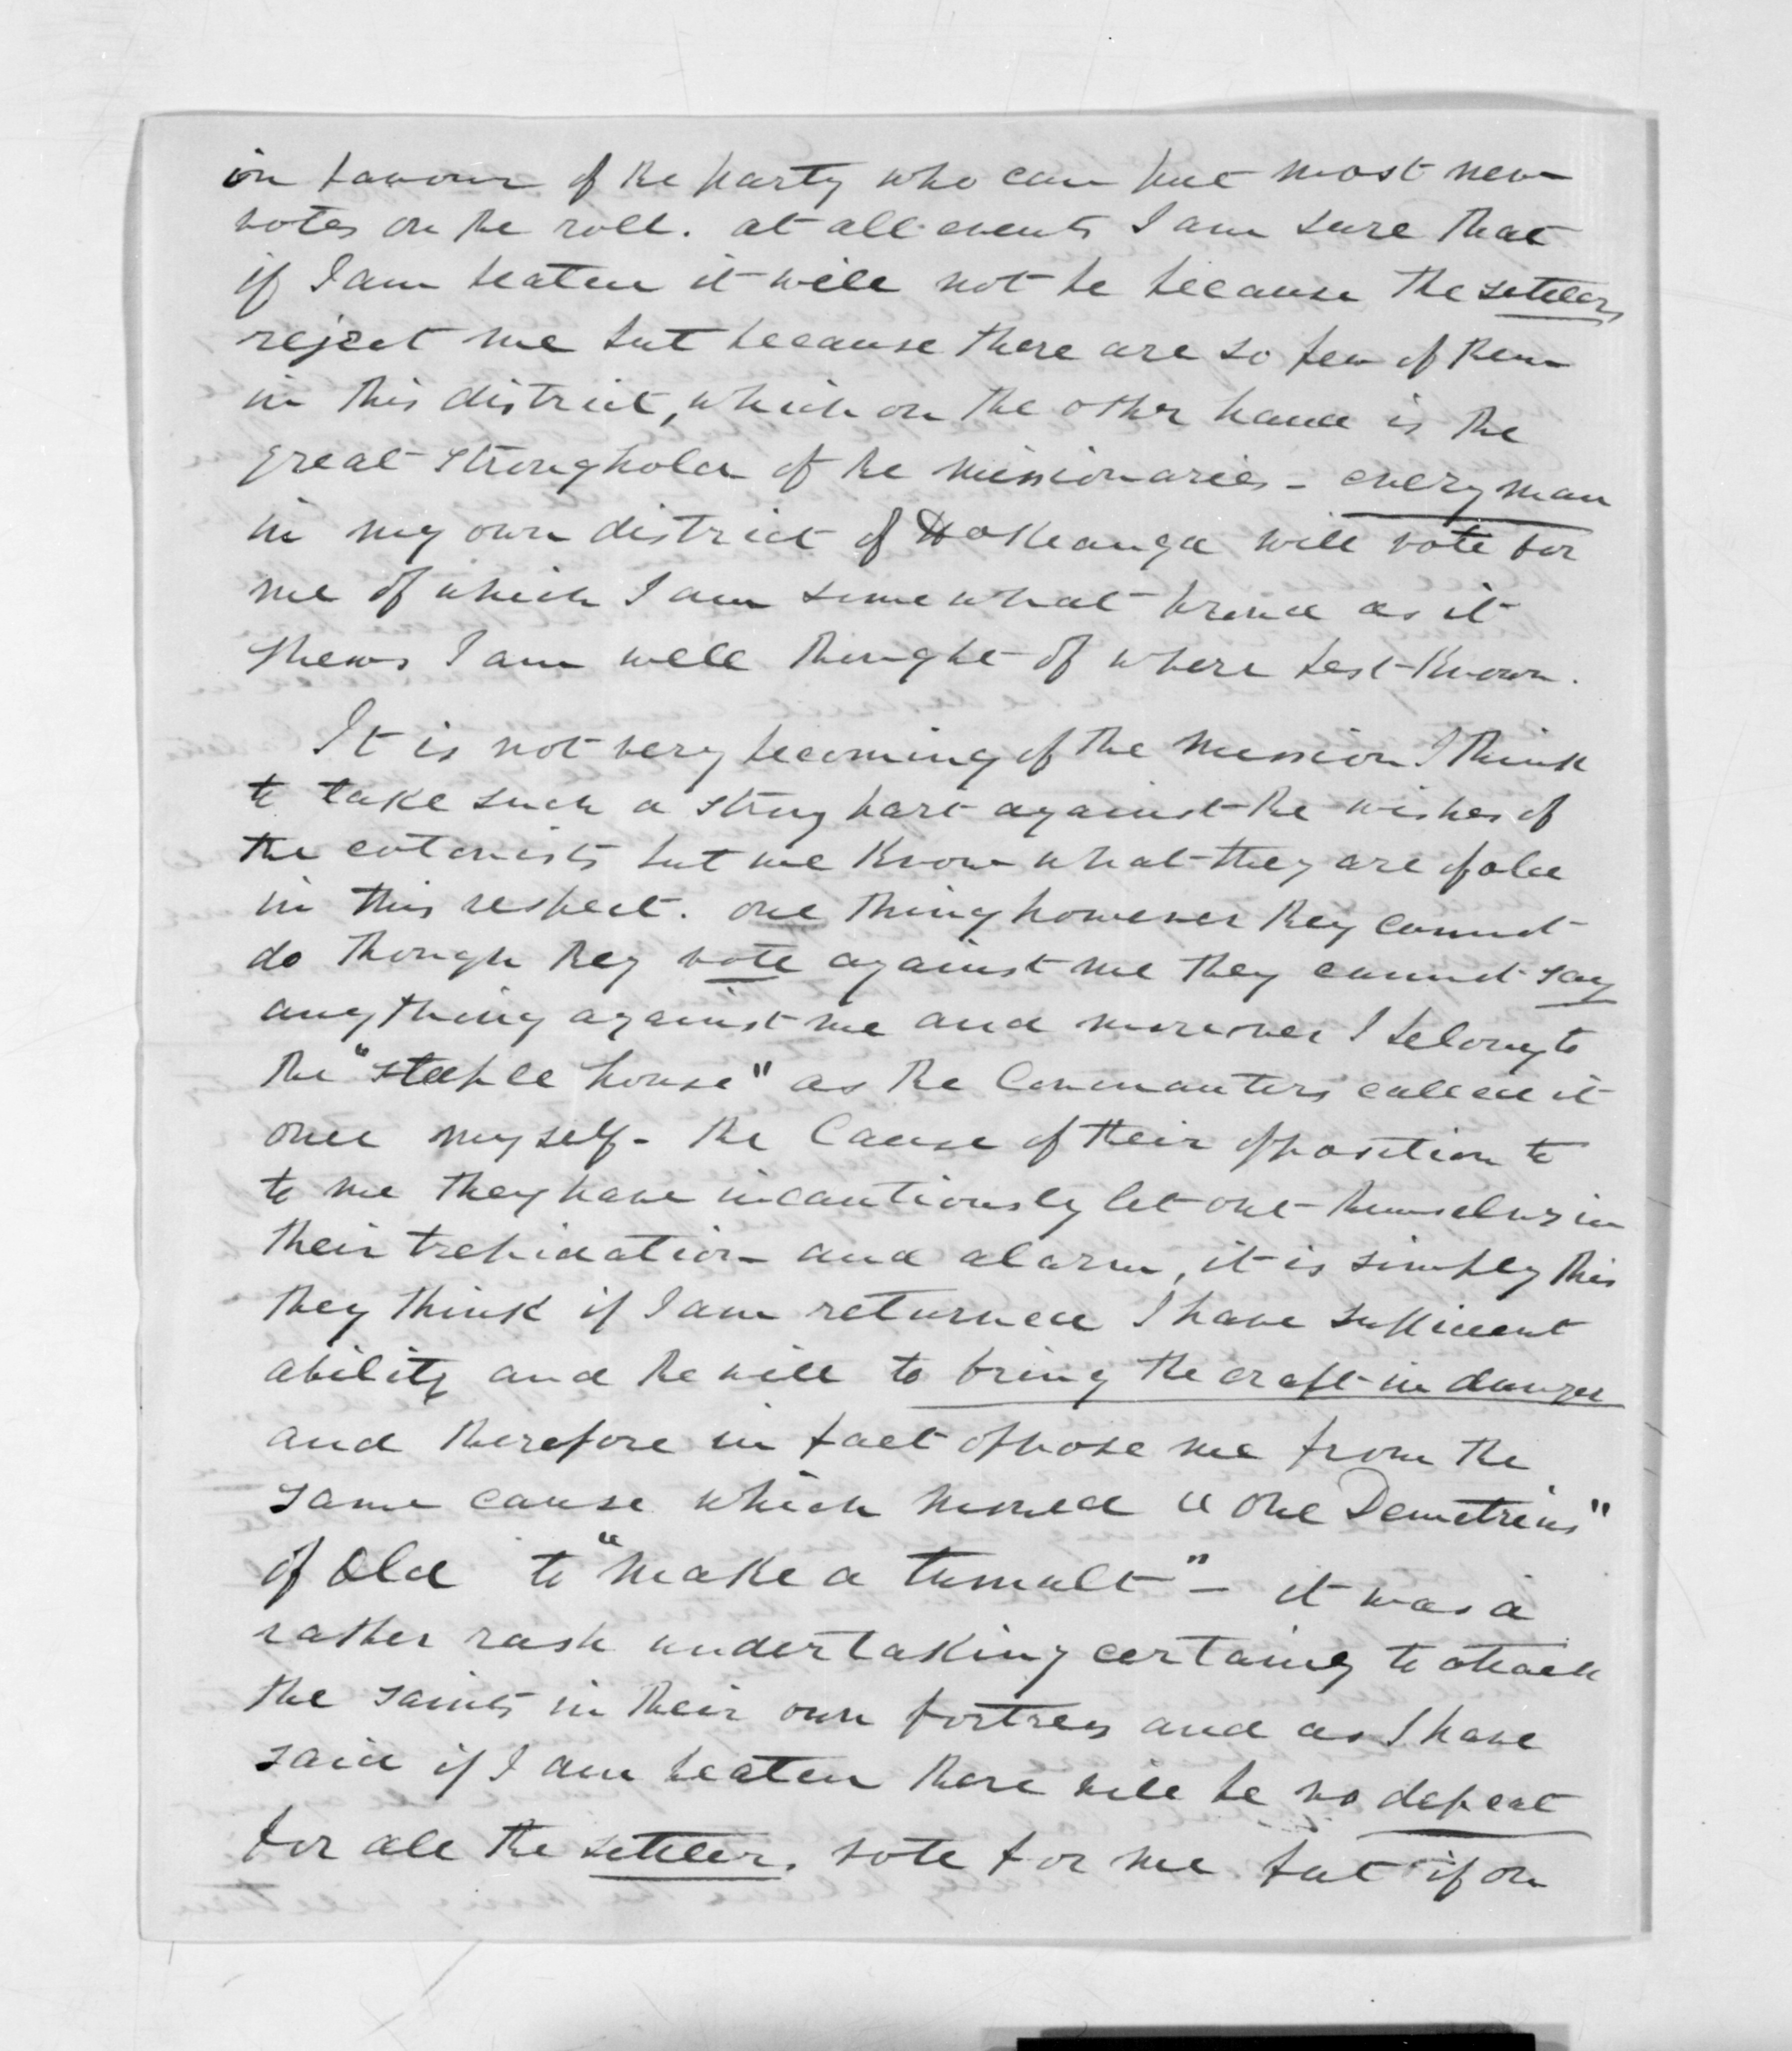 in favour of the party who can put most new
votes on the roll. at all events I am sure that
if I am beaten it will not be because the settlers
reject me but because there are so few of them
in this district, which on the other hand is the
great stronghold of the missionaries - every man
in my own district of Hokianga will vote for
me of which I am somewhat proud as it
shews I am well thought of where best known.
It is not very becoming of the mission I think
to take such a strong part against the wishes of
the colonists but we know what they are of old
in this respect. one thing however they cannot
do though they vote against me they cannot say
any thing against me and moreover I belong to
the "steeple house" as the Covenanters called it
once myself - the Cause of their opposition to
to me they have incautiously let out themselves in
their trepidation and alarm, it is simply this
they think if I am returned I have sufficient
ability and the will to bring the craft in danger
and therefore in fact oppose me from the
same cause which moved "one Demetrius"
of old to "make a tumult" - it was a
rather rash undertaking certainly to attack
the saints in their own fortress and as I have
said if I am beaten there will be no defeat
for all the settlers vote for me but if on